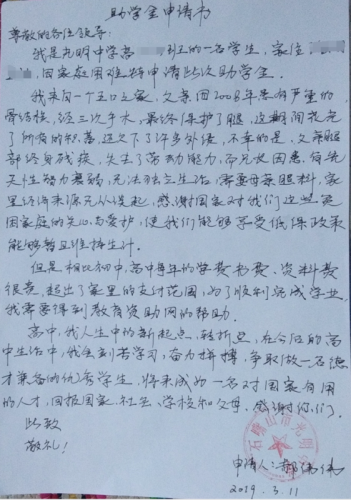 助学金申请书
尊敬的各位领导：
我是光明中学高 班的一名学生，家住
，因家庭困难特申请此次助学金。
我来自一个五口之家，父亲因2008年患有严重的
骨结核，经三次手术，最终保护了腿，这期间花完
了所有的积蓄，还欠下了许多外债，不幸的是，父亲腿
部终身残疾，失去了劳动能力，而兄长因患有先
天性智力薄弱，无法独立生活，需要母亲照料，家
里经济来源无从谈起，感谢国家对我们这些
困家庭的关心与爱护，使我们能够享受低保政策
能够暂且维持生计。
但是相比初中，高中每年的学费书费、资料费
很贵，超出了家里的支付范围，为了顺利完成学业，
我需要得到教育资助网的帮助。
高中，我人生中的新起点、转折点，在今后的高
中生活中，我会刻苦学习，奋力拼搏，争取做一名德
才兼备的优秀学生，将来成为一名对国家有用
的人才，回报国家、社会、学校和父母，感谢你们。
此致
敬礼！
申请人：郝伟伟
2019.3.11